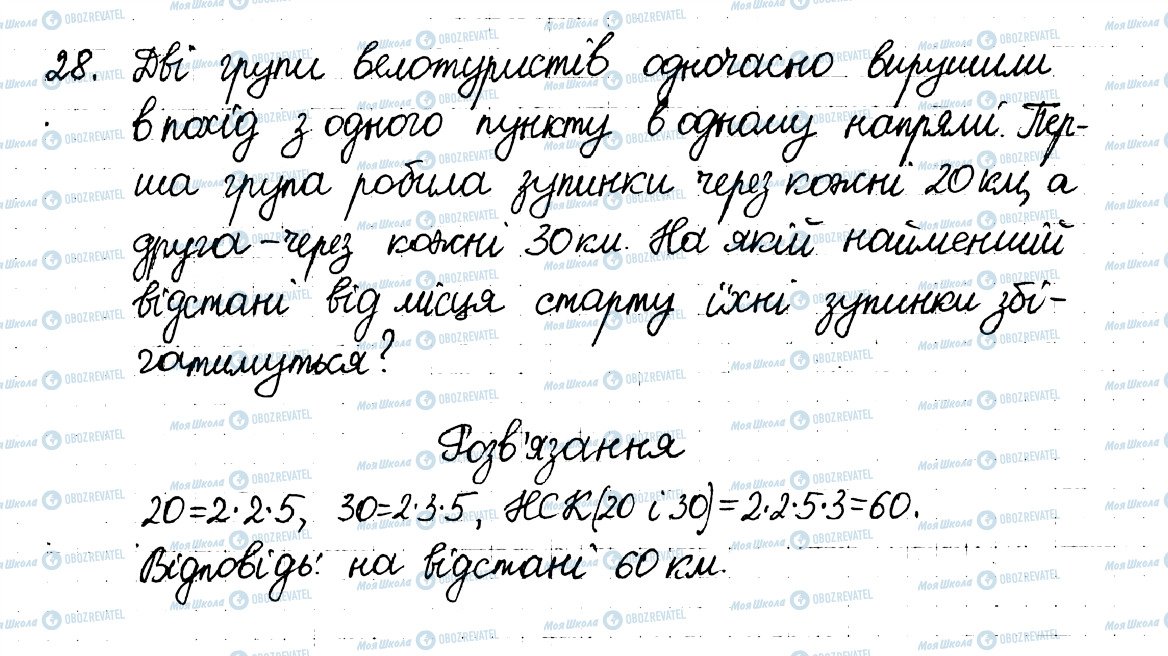 28. Дві групи велотуристів одночасно вирушили
в похід з одного пункту в одному напрямі. Пер-
ша група робила зупинки через кожні 20 км, а
друга – через кожні 30 км. На якій найменшій
відстані від місця старту їхні зупинки збі-
гатимуться?
Розв'язання
20=2·2·5, 30=2·3·5, НСК(20 і 30)=2·2·5·3=60.
Відповідь: на відстані 60 км.